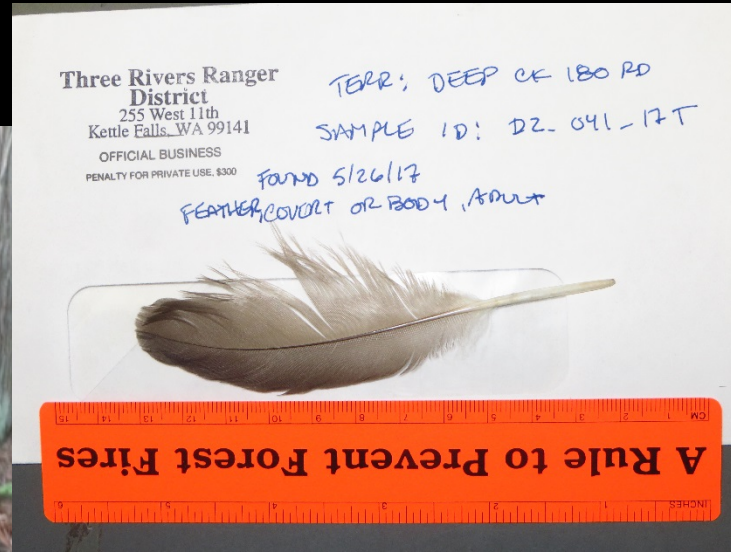 Three Rivers Ranger
District
255 West 11th
Kettle Falls, WA 99141
OFFICIAL BUSINESS
PENALTY FOR PRIVATE USE, $300
TERR: DEEP CK 180 RD
SAMPLE ID: D2_041_17T
FOUND 5/26/17
FEATHER, COVERT OR BODY, ADULT
CM 1 2 3 4 5 6 7 8 9 10 11 12 13 14 15
A Rule to Prevent Forest Fires
INCHES 1 2 3 4 5 6